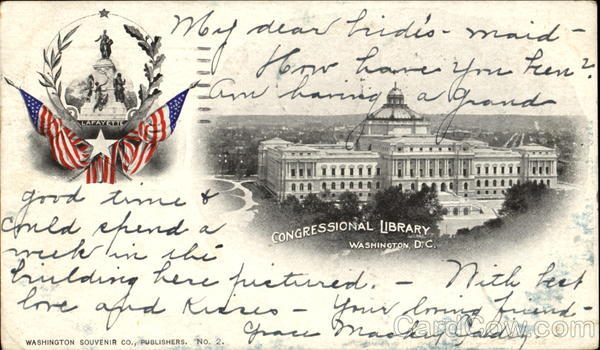 My dear bride's-maid -
How have you been?
Am having a grand
LAFAYETTE
good time &
could spend a
week in the
building here pictured. - With best
love and kisses - Your loving friend -
Grace
CONGRESSIONAL LIBRARY
WASHINGTON, D.C.
WASHINGTON SOUVENIR CO., PUBLISHERS. No. 2.
CardCow.com